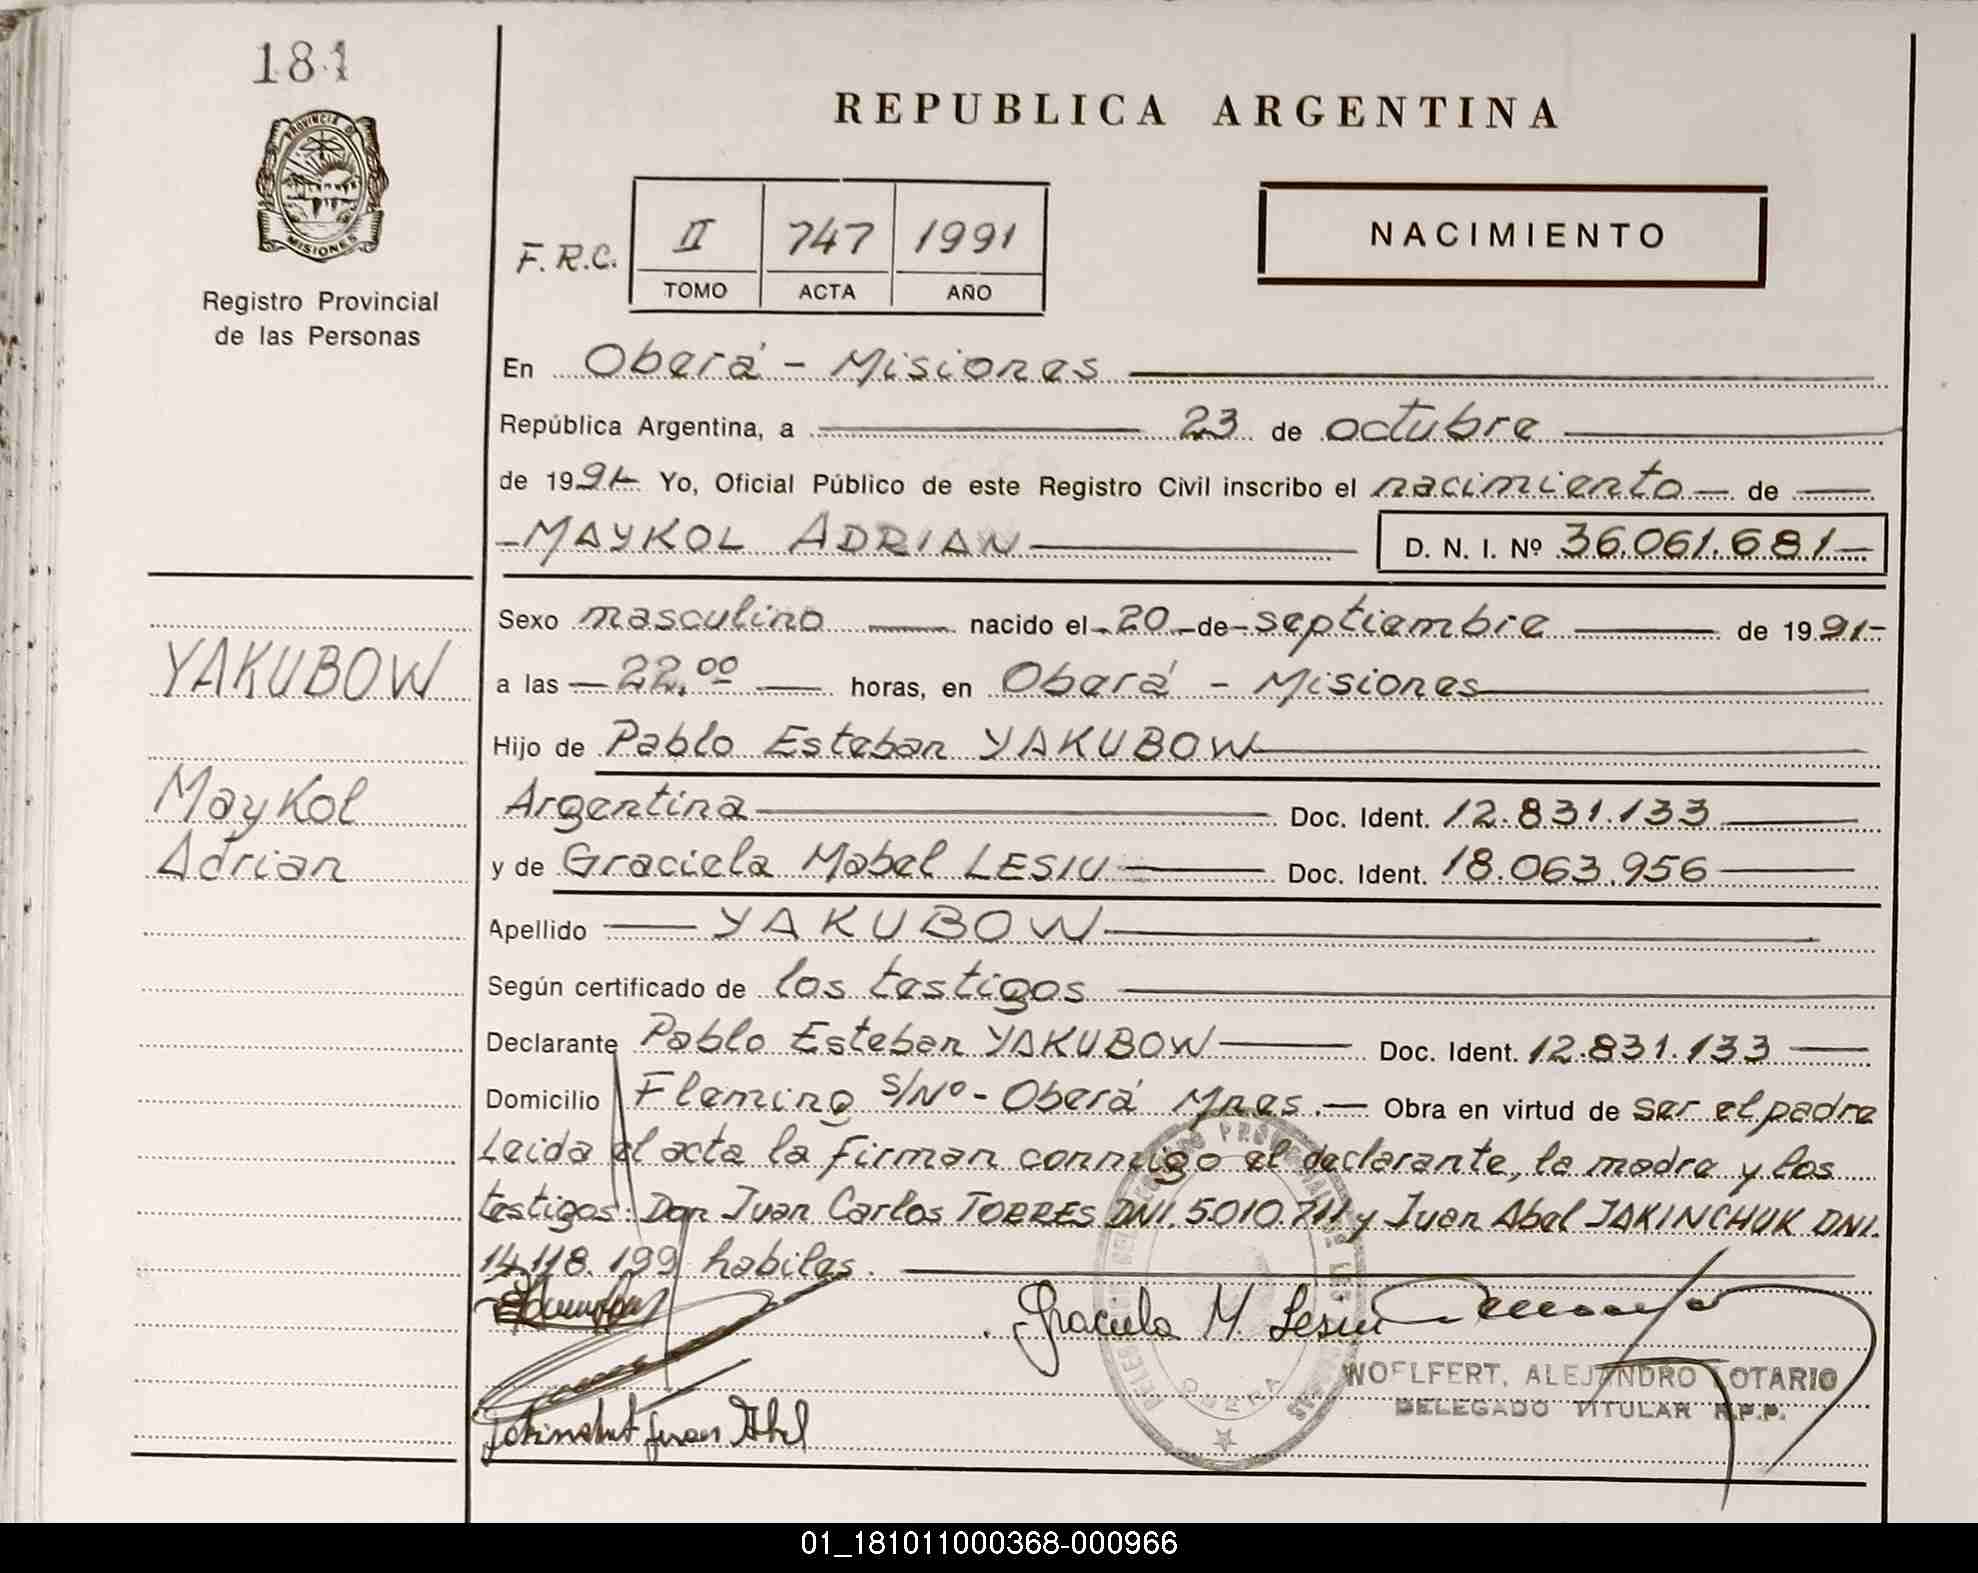 181
PROVINCIA DE
MISIONES
Registro Provincial
de las Personas
YAKUBOW
Maykol
Adrian
REPUBLICA ARGENTINA
F.R.C.
II 747 1991
TOMO ACTA AÑO
NACIMIENTO
En Oberá - Misiones
República Argentina, a 23 de octubre
de 1991- Yo, Oficial Público de este Registro Civil inscribo el nacimiento - de
- MAYKOL ADRIAN D. N. I. Nº 36.061.681-
Sexo masculino nacido el - 20 - de - septiembre de 1991-
a las - 22,00 horas, en Oberá - Misiones
Hijo de Pablo Esteban YAKUBOW
Argentina Doc. Ident. 12.831.133
y de Graciela Mabel LESIU Doc. Ident. 18.063.956
Apellido YAKUBOW
Según certificado de los testigos
Declarante Pablo Esteban YAKUBOW Doc. Ident. 12.831.133
Domicilio Fleming s/Nº - Oberá Mnes. - Obra en virtud de ser el padre
Leida el acta la firman conmigo el declarante, la madre y los
testigos: Don Juan Carlos TORRES DNI. 5.010.711 y Juan Abel JAKINCHUK DNI.
14.118.199 habiles.
Graciela M. Lesiu
WOELFERT, ALEJANDRO LOTARIO
DELEGADO TITULAR R.P.P.
OBERA
Juan Abel
01_181011000368-000966